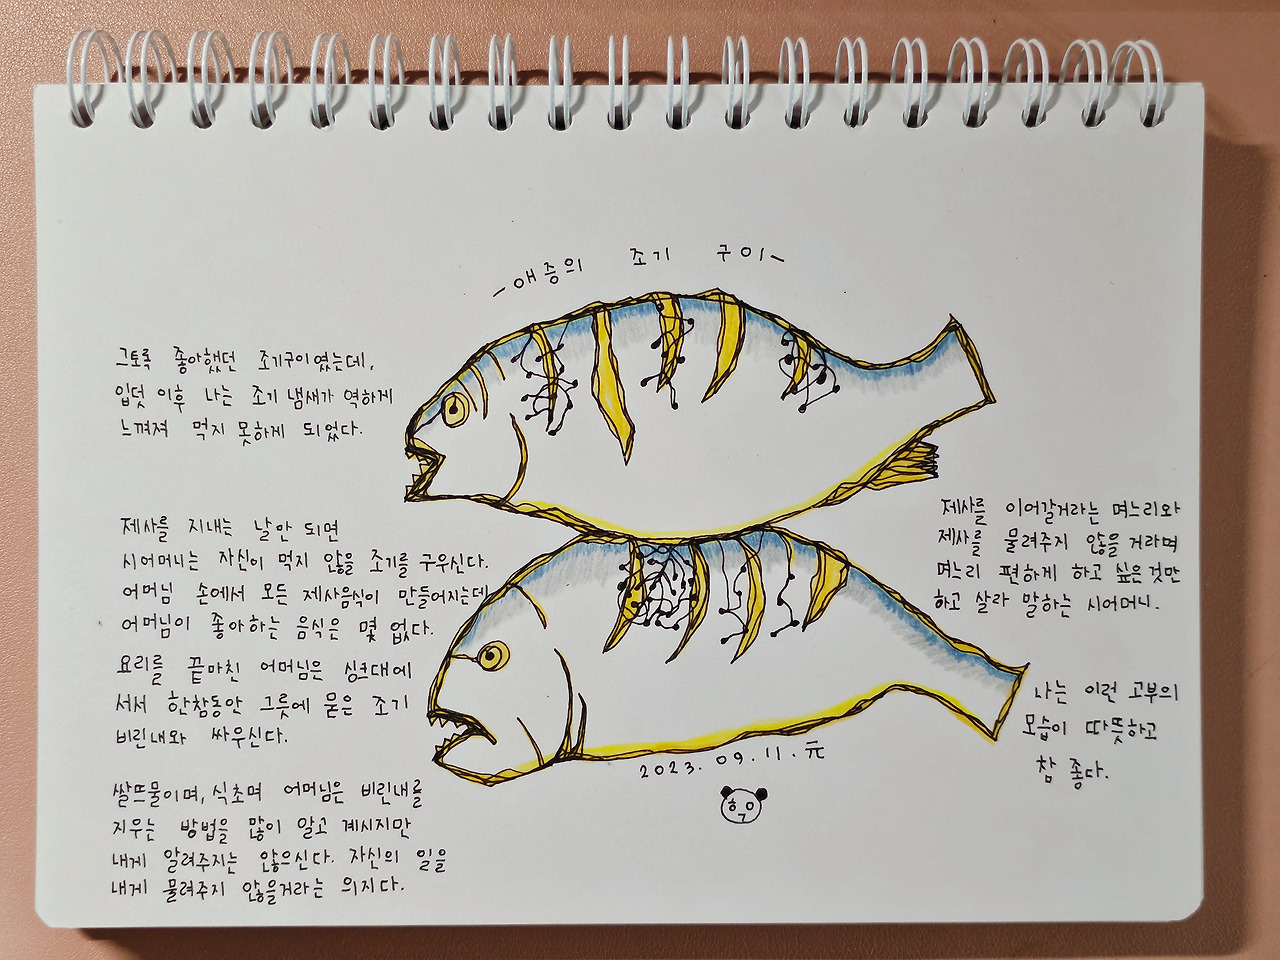 -애증의 조기 구이-
그토록 좋아했던 조기구이였는데,
입덧 이후 나는 조기 냄새가 역하게
느껴져 먹지 못하게 되었다.
제사를 지내는 날만 되면
시어머니는 자신이 먹지 않을 조기를 구우신다.
어머님 손에서 모든 제사음식이 만들어지는데
어머님이 좋아하는 음식은 몇 없다.
요리를 끝마친 어머님은 싱크대에
서서 한참동안 그릇에 묻은 조기
비린내와 싸우신다.
쌀뜨물이며, 식초며 어머님은 비린내를
지우는 방법을 많이 알고 계시지만
내게 알려주지는 않으신다. 자신의 일을
내게 물려주지 않을거라는 의지다.
제사를 이어갈거라는 며느리와
제사를 물려주지 않을거라며
며느리 편하게 하고 싶은것만
하고 살라 말하는 시어머니.
나는 이런 고부의
모습이 따뜻하고
참 좋다.
2023. 09. 11. 元